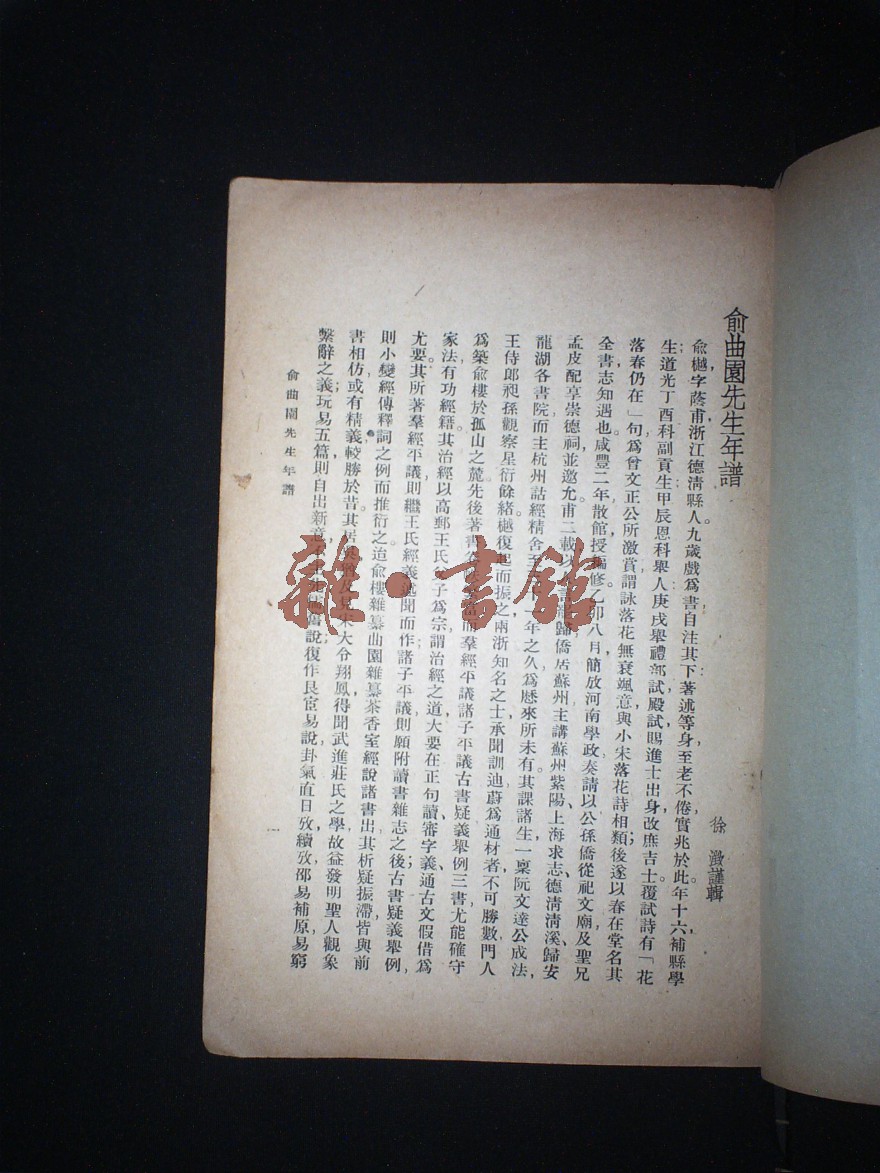 俞曲園先生年譜
徐澂謹輯
俞樾，字蔭甫，浙江德清縣人。九歲戲爲書，自注其下，著述等身，至老不倦，實兆於此。年十六，補縣學
生；道光丁酉科副貢生；甲辰恩科舉人；庚戌舉禮部試，殿試賜進士出身，改庶吉士。覆試詩有「花
落春仍在」句，爲曾文正公所激賞，謂詠落花無衰颯意，與小宋落花詩相類；後遂以春在堂名其
全書，志知遇也。咸豐二年散館授編修，乙卯八月簡放河南學政，奏請以公孫僑從祀文廟，及聖兄
孟皮配享崇德祠，並邀允甫二載，以 歸，僑居蘇州，主講蘇州紫陽、上海求志、德清清溪、歸安
龍湖各書院，而主杭州詁經精舍至 一年之久，爲歷來所未有。其課諸生，一稟阮文達公成法，
王侍郎昶、孫觀察星衍餘緒，樾復起而振之，兩浙知名之士，承聞訓迪，蔚爲通材者，不可勝數。門人
爲築俞樓於孤山之麓，先後著書 而羣經平議、諸子平議、古書疑義舉例三書，尤能確守
家法，有功經籍。其治經以高郵王氏父子爲宗，謂治經之道，大要在正句讀，審字義，通古文假借，爲
尤要。其所著羣經平議，則繼王氏經義述聞而作；諸子平議，則願附讀書雜志之後；古書疑義舉例，
則小變經傳釋詞之例而推衍之。迨俞樓雜纂、曲園雜纂、茶香室經說諸書出，其析疑振滯，皆與前
書相仿，或有精義較勝於昔。其居 及見宋大令翔鳳，得聞武進莊氏之學，故益發明聖人觀象
繫辭之義，玩易五篇，則自出新意， 說；復作艮宧易說，卦氣直日攷，續攷，邵易補原，易窮
俞曲園先生年譜
一
雜·書館